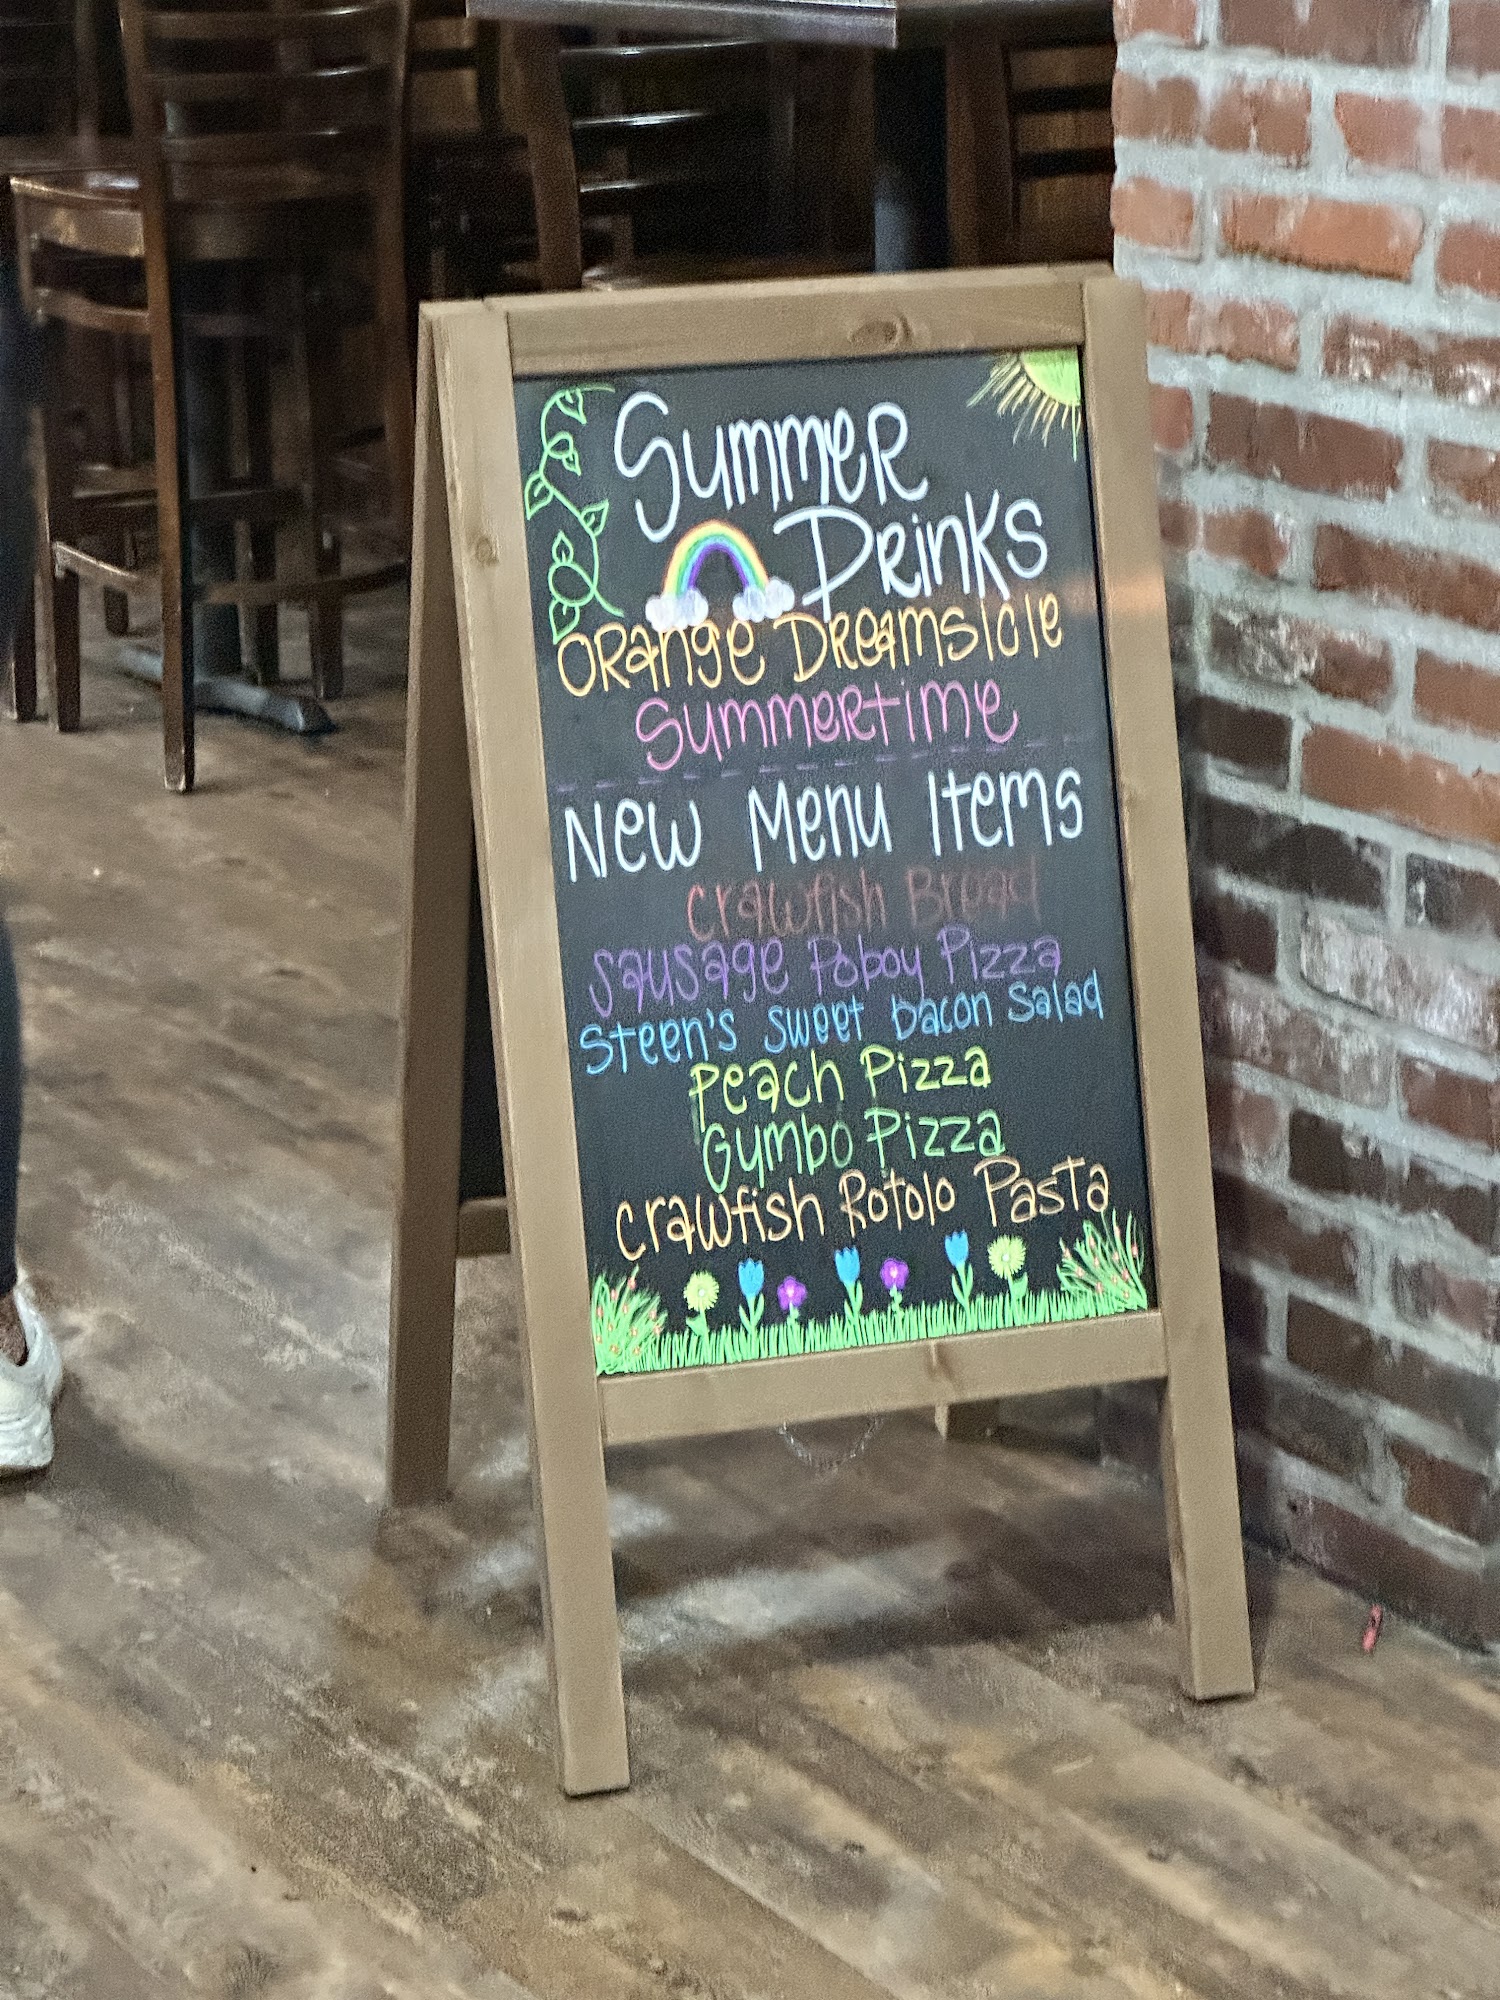 Summer
Drinks
Orange Dreamsicle
Summertime
New Menu Items
Crawfish Bread
Sausage Poboy Pizza
Steen's Sweet Bacon Salad
Peach Pizza
Gumbo Pizza
Crawfish Rotolo Pasta